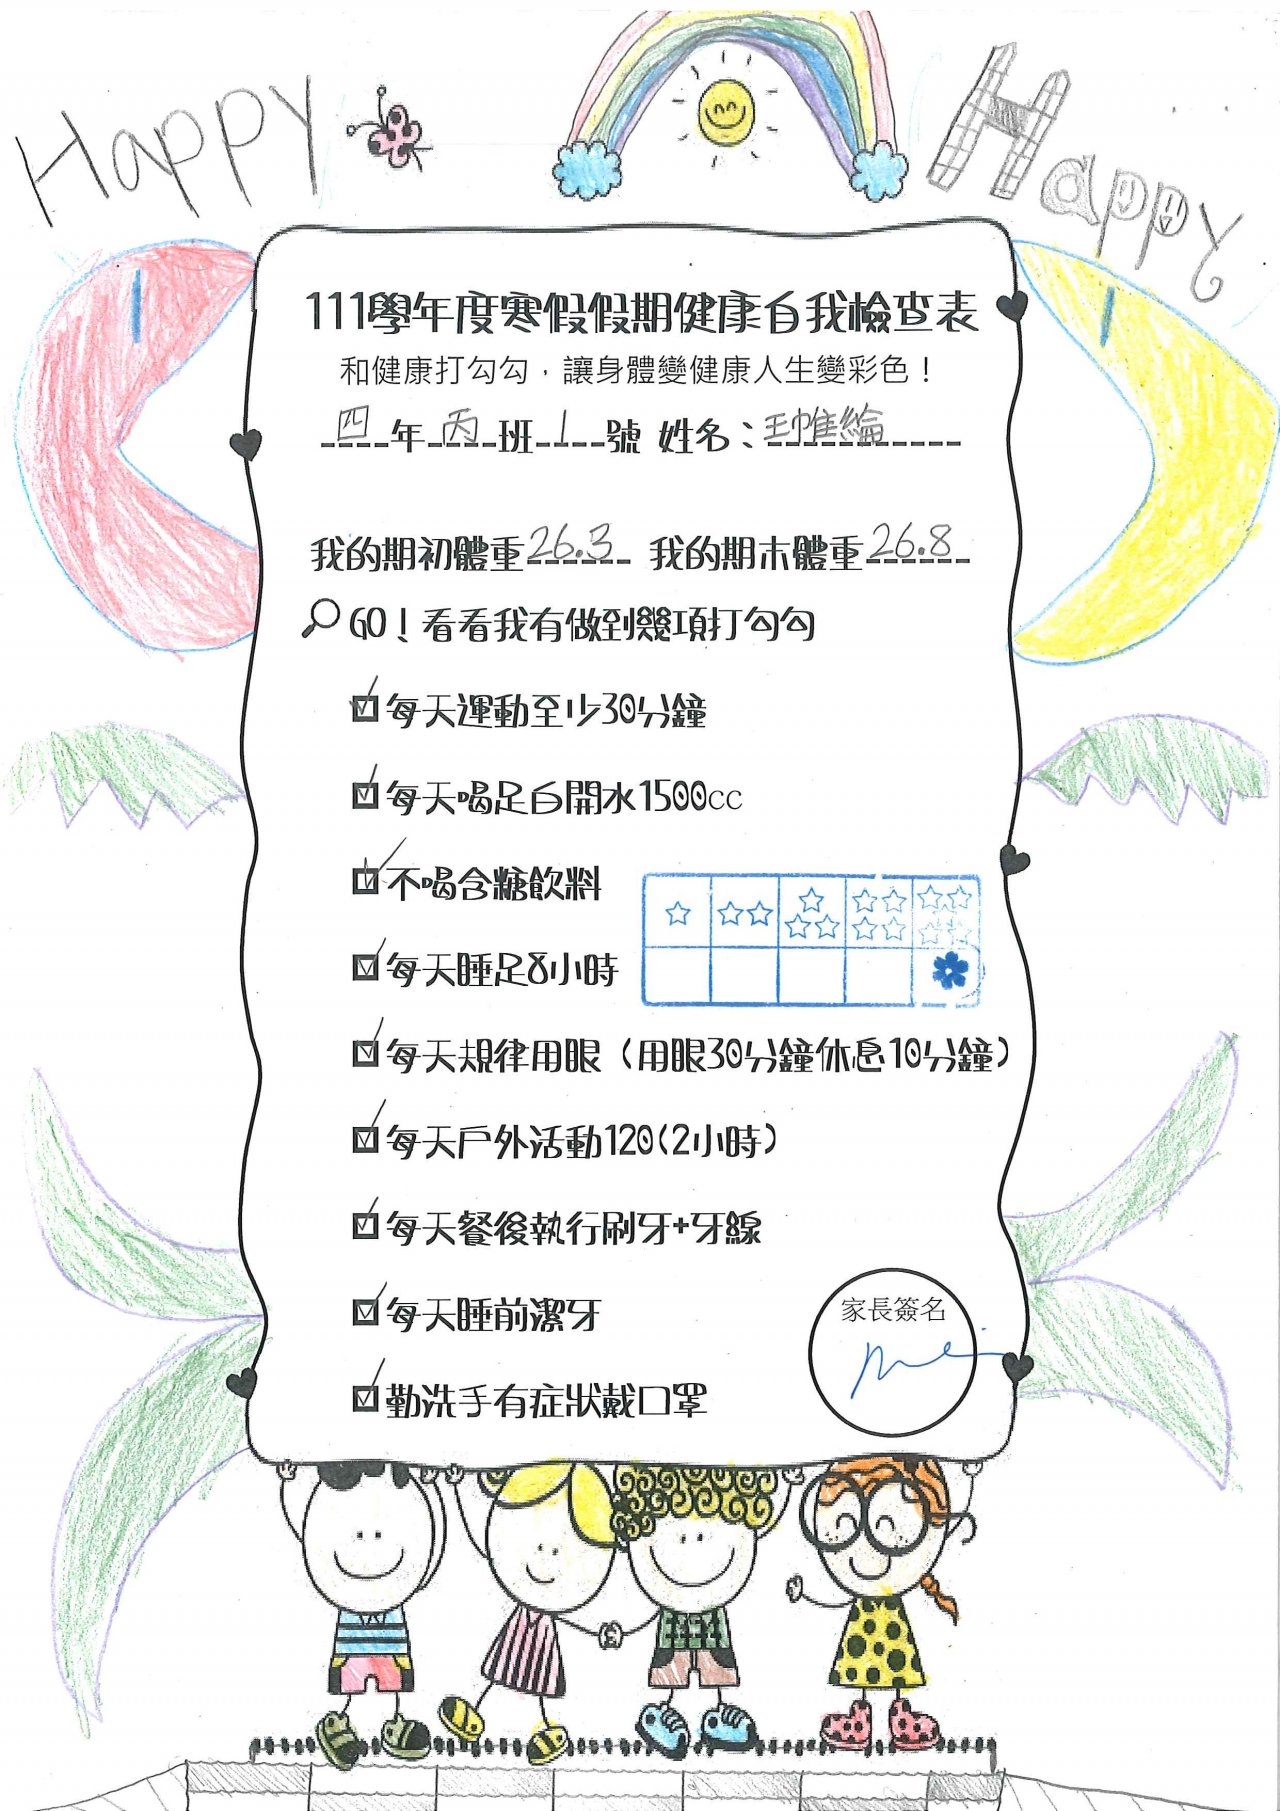 Happy
Happy
111學年度寒假假期健康自我檢查表
和健康打勾勾，讓身體變健康人生變彩色！
四年丙班1號 姓名：王帷綸
我的期初體重26.3 我的期末體重26.8
GO！看看我有做到幾項打勾勾
每天運動至少30分鐘
每天喝足白開水1500cc
不喝含糖飲料
每天睡足8小時
每天規律用眼（用眼30分鐘休息10分鐘）
每天戶外活動120(2小時)
每天餐後執行刷牙+牙線
每天睡前潔牙
家長簽名
勤洗手有症狀戴口罩